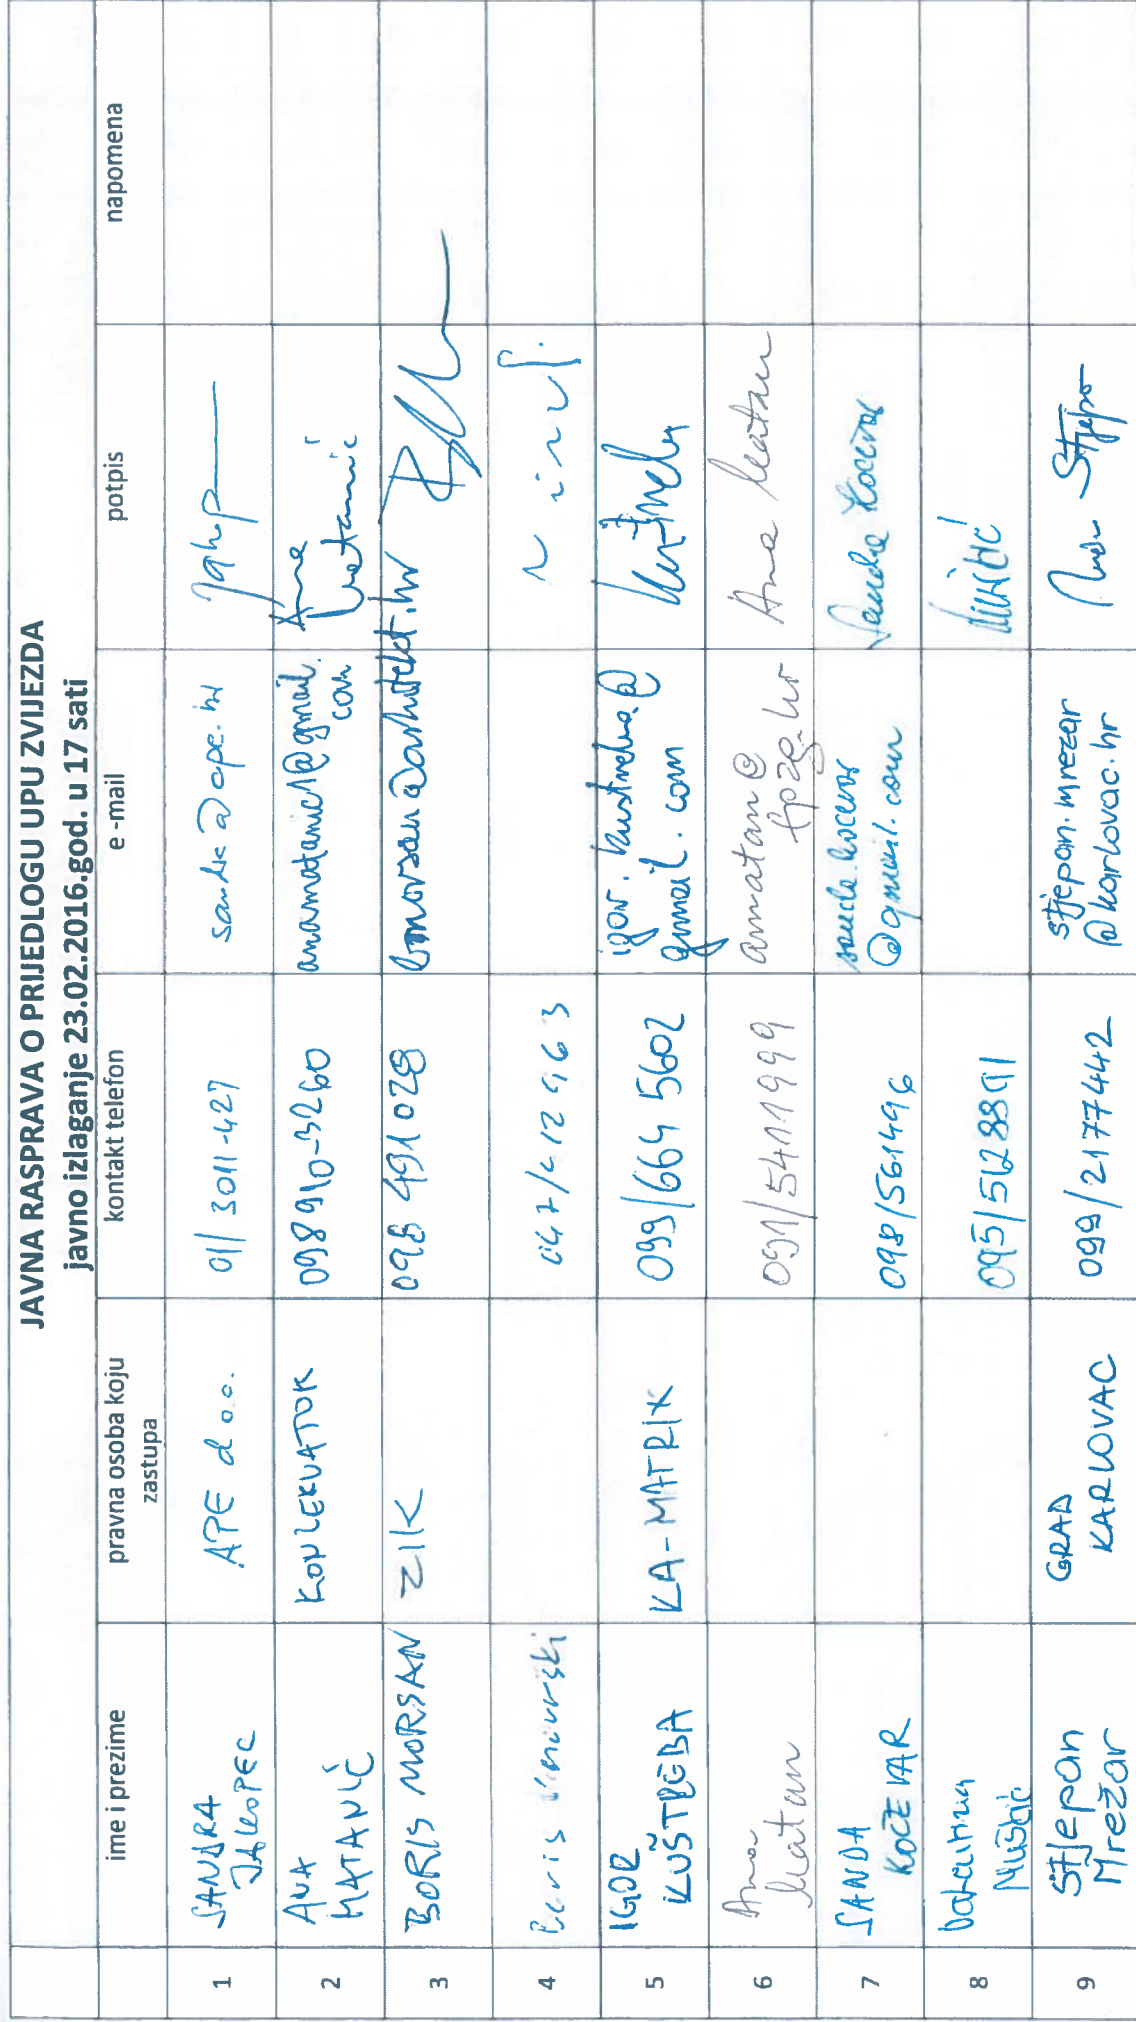 JAVNA RASPRAVA O PRIJEDLOGU UPU ZVIJEZDA
javno izlaganje 23.02.2016.god. u 17 sati
ime i prezime
pravna osoba koju
zastupa
kontakt telefon
e -mail
potpis
napomena
1
SANDRA
JAKOPEC
APE d.o.o.
01/ 3011-427
sandra@ape.hr
2
ANA
MATANIĆ
KONZERVATOR
098 910-3260
anamatanic1@gmail.
com
Ana
Matanić
3
BORIS MORSAN
ZIK
098 491 028
bmorsan@arhitekt.hr
4
Boris
047/412 963
5
IGOR
KUŠTREBA
KA-MATRIX
099/664 5602
igor.kustreba@
gmail.com
Kuštreba
6
Ana
Matan
091/5411999
amatan@
fpzg.hr
Ana Matan
7
SANDA
KOČEVAR
098/561496
sanda.kocevar
@gmail.com
Sanda Kočevar
8
Mušić
095/5128891
9
Stjepan
Mrežar
GRAD
KARLOVAC
099/2177442
stjepan.mrezar
@karlovac.hr
Stjepan